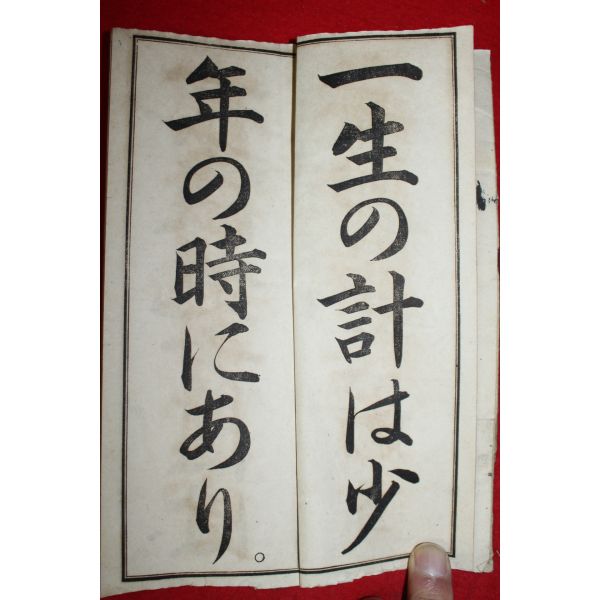 一生の計は少
年の時にあり。